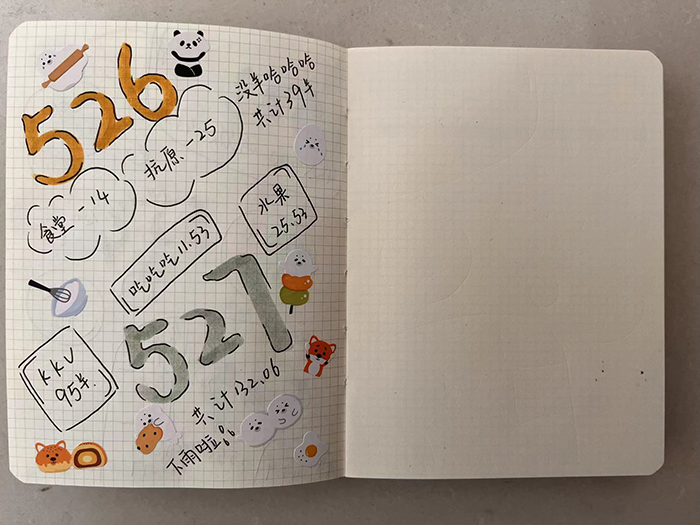 526
没羊哈哈哈
共计39羊
抗原 -25
食堂 -14
水果
25.53
吃吃吃11.53
527
KKV
95羊.
共计132.06
下雨啦